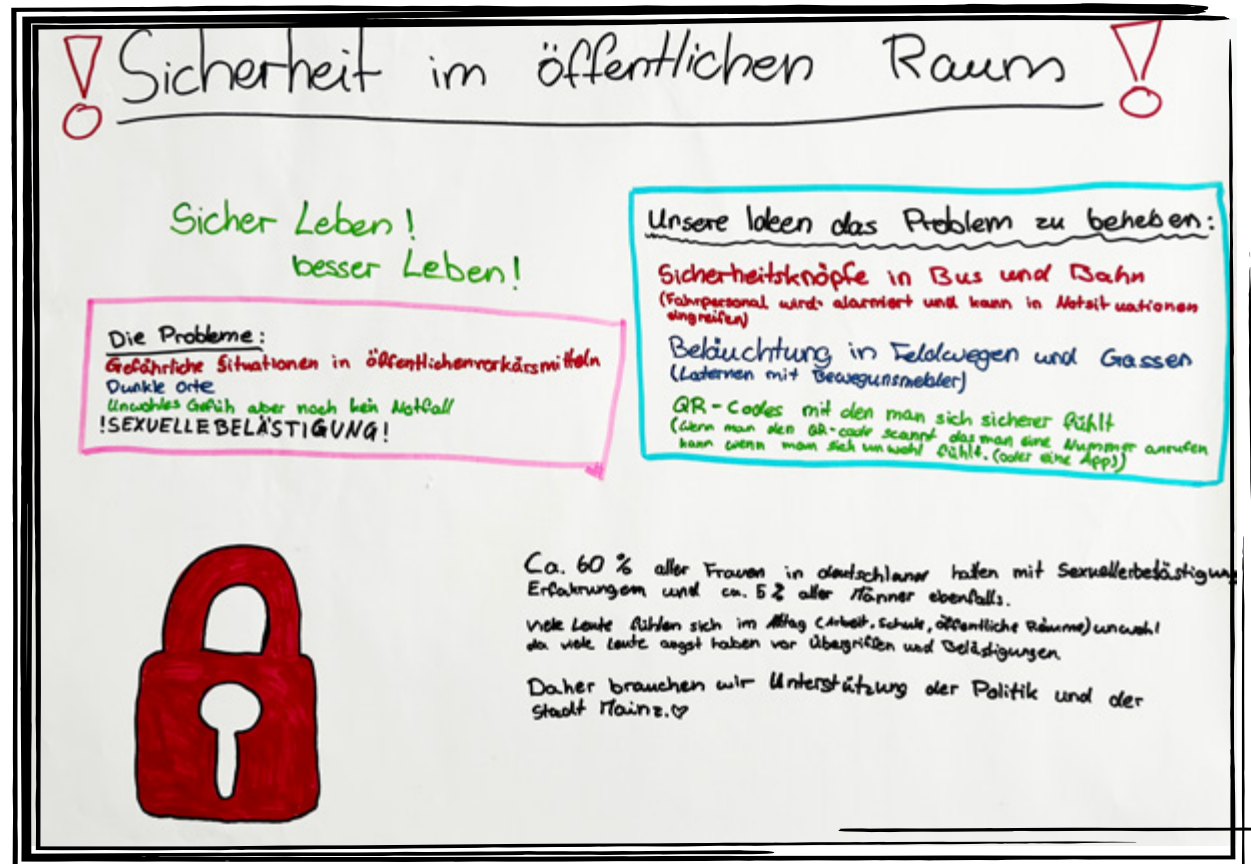 Sicherheit im öffentlichen Raum
Sicher Leben!
besser Leben!
Die Probleme:
Gefährliche Situationen in öffentlichenverkärsmitteln
Dunkle Orte
Unwohles Gefüh aber noch kein Notfall
!SEXUELLE BELÄSTIGUNG!
Unsere Ideen das Problem zu beheben:
Sicherheitsknöpfe in Bus und Bahn
(Fahrpersonal wird alarmiert und kann in Notsituationen
eingreifen)
Beläuchtung in Feldwegen und Gassen
(Laternen mit Bewegunsmelder)
QR-Codes mit den man sich sicherer fühlt
(Wenn man den QR-code scannt das man eine Nummer anrufen
kann wenn man sich unwohl fühlt. (oder eine Apps)
Ca. 60 % aller Frauen in deutschland haben mit Sexuellerbelästigung
Erfahrungem und ca. 5 % aller Männer ebenfalls.
Viele Leute fühlen sich im Alltag (Arbeit, Schule, öffentliche Räume) unwohl
da viele Leute angst haben vor Übergriffen und Belästigungen.
Daher brauchen wir Unterstützung der Politik und der
Stadt Mainz.♡